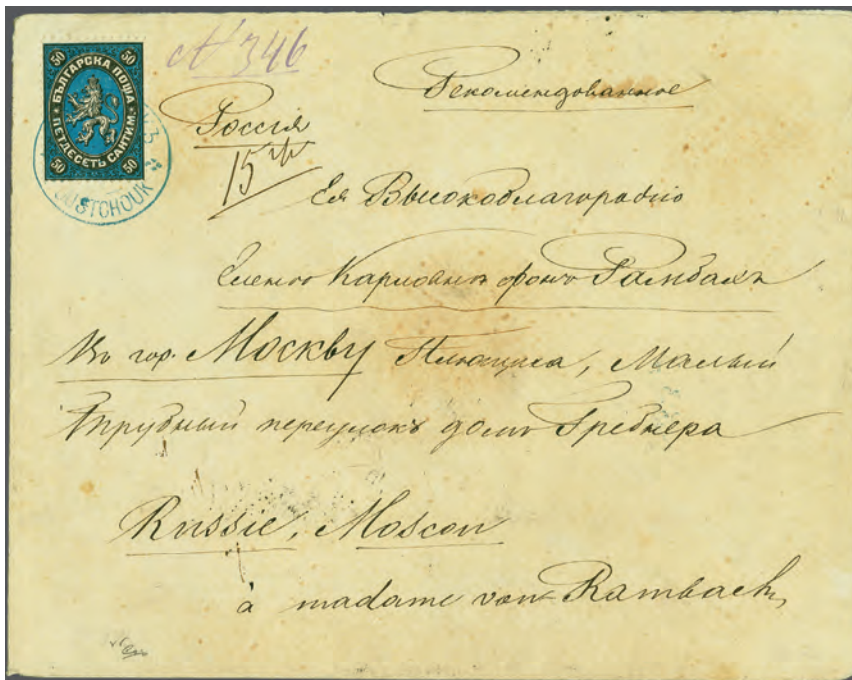 50 50
БЪЛГАРСКА ПОЩА
ПЕТДЕСЕТЬ САНТИМ.
50 50
№ 346
Рекомендованное
Россія
15
Ея Высокоблагородію
Еленѣ Карловнѣ фонъ Рамбахъ
Въ гор. Москву Плющиха, Малый
Трубный переулокъ домъ Гребнера
Russie, Moscou
à madame von Rambach,